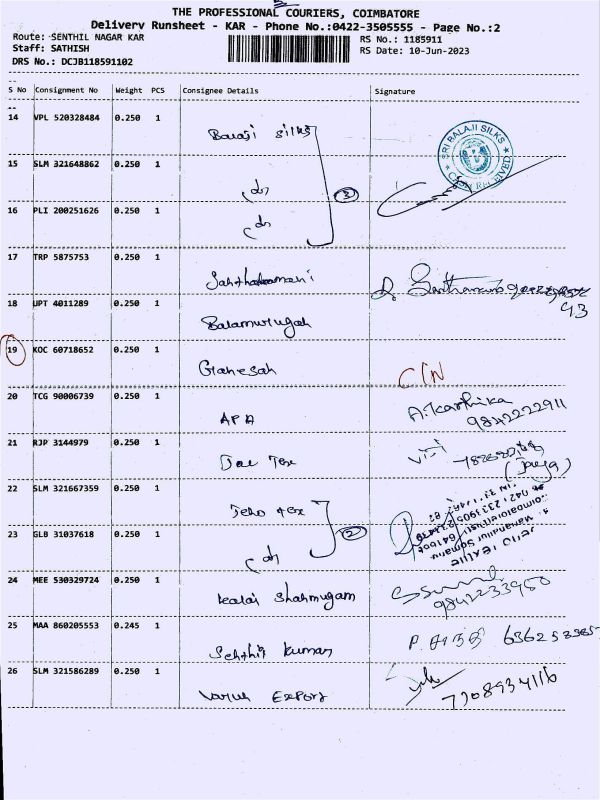 THE PROFESSIONAL COURIERS, COIMBATORE
Delivery Runsheet - KAR - Phone No.:0422-3505555 - Page No.:2
Route: SENTHIL NAGAR KAR
RS No.: 1185911
Staff: SATHISH
RS Date: 10-Jun-2023
DRS No.: DCJB118591102
S No Consignment No Weight PCS Consignee Details Signature
14 VPL 520328484 0.250 1
Balaji silks
SRI BALAJI SILKS
15 SLM 321648862 0.250 1
do
3
16 PLI 200251626 0.250 1
do
17 TRP 5875753 0.250 1
18 UPT 4011289 0.250 1
Balamurugan
19 KOC 60718652 0.250 1
Ganesan
C/N
20 TCG 90006739 0.250 1
APA
A.Karthika
9842222911
21 RJP 3144979 0.250 1
Tex
(Jaya)
22 SLM 321667359 0.250 1
Jeno tex
23 GLB 31037618 0.250 1
do
2
24 MEE 530329724 0.250 1
Kalai Shanmugam
9842233950
25 MAA 860205553 0.245 1
Senthil Kumar
26 SLM 321586289 0.250 1
Varun Export